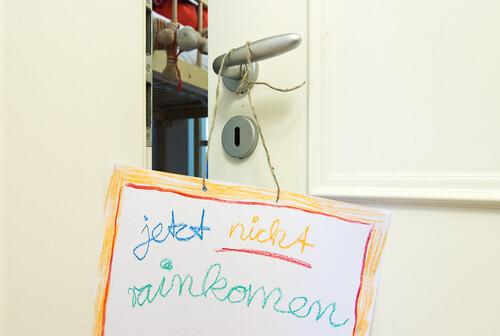 jetzt nicht
rainkomen